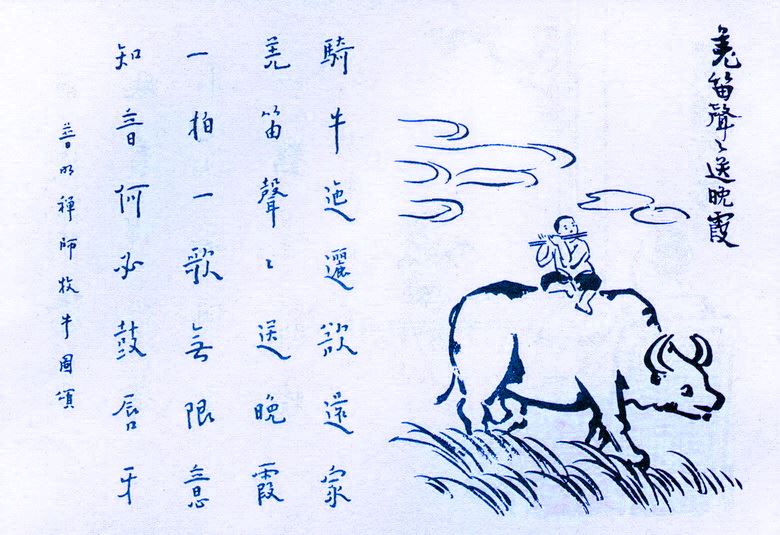 羌笛聲〻送晚霞
騎牛迤邐欲還家
羌笛聲〻送晚霞
一拍一歌無限意
知音何必鼓唇牙
普明禪師牧牛圖頌